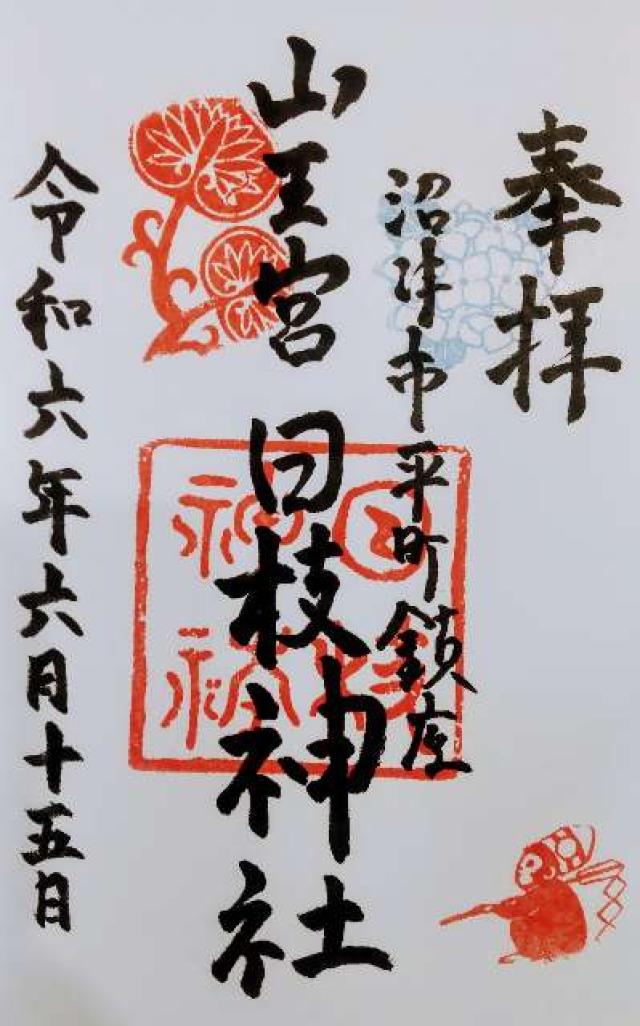 奉拝
沼津市平町鎮座
山王宮 日枝神社
日枝
神社
令和六年六月十五日